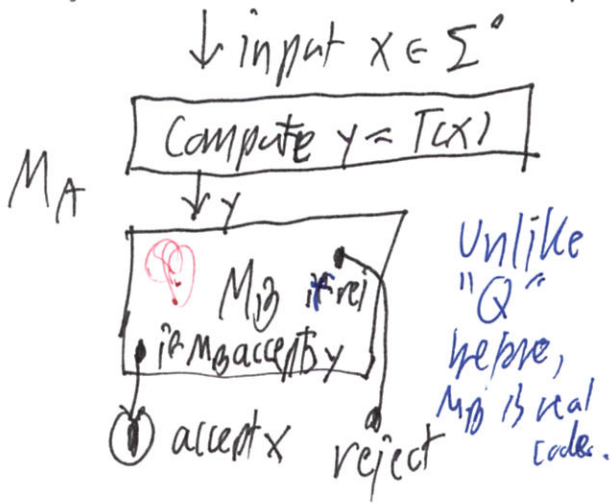 ↓ input x ∈ Σ*
Compute y = T(x)
M_A
↓ y
M_B if rej
if M_B accepts y
accept x
reject
Unlike
"Q"
before,
M_B is real
code.